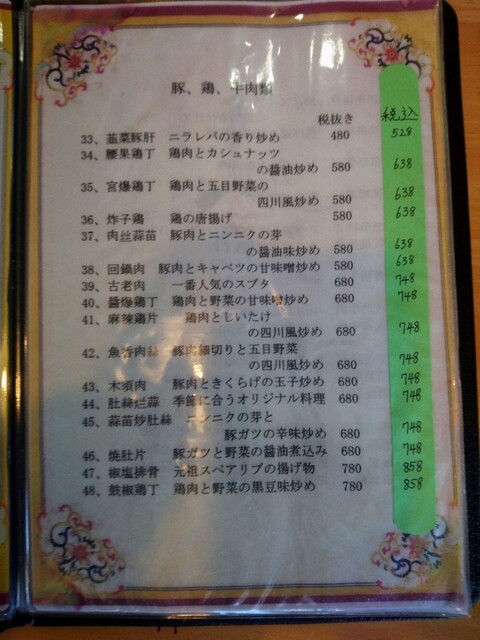 豚、鶏、牛肉類
税抜き 税込
33、韮菜豚肝 ニラレバの香り炒め 480 528
34、腰果鶏丁 鶏肉とカシュナッツ
の醤油炒め 580 638
35、宮爆鶏丁 鶏肉と五目野菜の
四川風炒め 580 638
36、炸子鶏 鶏の唐揚げ 580 638
37、肉丝蒜苗 豚肉とニンニクの芽
の醤油味炒め 580 638
38、回鍋肉 豚肉とキャベツの甘味噌炒め 580 638
39、古老肉 一番人気のスブタ 680 748
40、醤爆鶏丁 鶏肉と野菜の甘味噌炒め 680 748
41、麻辣鶏片 鶏肉としいたけ
の四川風炒め 680 748
42、魚香肉絲 豚肉細切りと五目野菜
の四川風炒め 680 748
43、木須肉 豚肉ときくらげの玉子炒め 680 748
44、肚絲烂蒜 季節に合うオリジナル料理 680 748
45、蒜苗炒肚絲 ニンニクの芽と
豚ガツの辛味炒め 680 748
46、焼肚片 豚ガツと野菜の醤油煮込み 680 748
47、椒塩排骨 元祖スペアリブの揚げ物 780 858
48、鼓椒鶏丁 鶏肉と野菜の黒豆味炒め 780 858